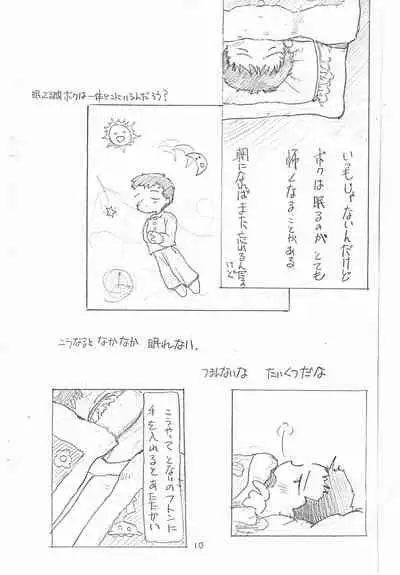 いつもじゃないんだけど
ボクは眠るのが とても
怖くなることがある
朝になればまた忘れるん
けど
眠る時ボクは一体どこにいるんだろう?
こうなると なかなか 眠れない。
つまんないな たいくつだな
こうやって となりのフトンに
手を入れるとあたたかい
10